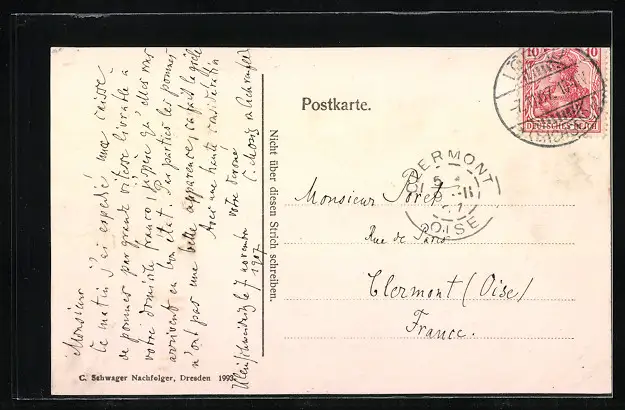 Monsieur
Ce matin j'ai expédié une caisse
de pommes par grande vitesse livrable à
votre domicile franco, j'espère qu'elles vous
arrivent en bon état. En partie les pommes
n'ont pas une belle apparence, ça fait la grêle
Avec une haute considération
votre dévoué
le 7 novembre
1907
Nicht über diesen Strich schreiben.
C. Schwager Nachfolger, Dresden
Postkarte.
10 10
DEUTSCHES REICH
CLERMONT
OISE
Monsieur Poret
Rue de Paris
Clermont (Oise)
France.